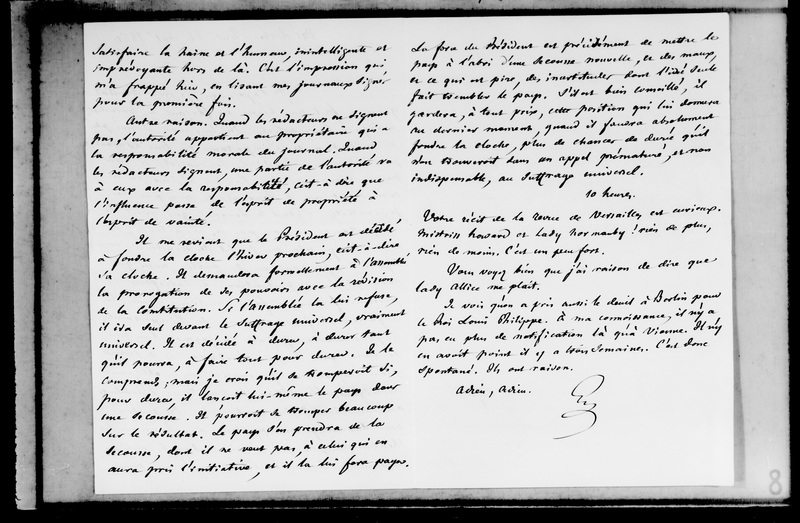 satisfaire la haine et l'humeur, inintelligente et
imprévoyante hors de là. C'est l'impression qui
m'a frappé hier, en lisant mes journaux signés
pour la première fois.
Autre raison. Quand les rédacteurs ne signent
pas, l'autorité appartient au propriétaire qui a
la responsabilité morale du journal. Quand
les rédacteurs signent, une partie de l'autorité va
à eux avec la responsabilité, c'est-à-dire que
l'influence passe de l'esprit de propriété à
l'esprit de vanité.
Il me revient que le Président est décidé
à fondre la cloche l'hiver prochain, c'est-à-dire
sa cloche. Il demandera formellement à l'assemblée
la prorogation de ses pouvoirs avec la révision
de la Constitution. Si l'assemblée la lui refuse,
il ira seul devant le suffrage universel, vraiment
universel. Il est décidé à durer, à durer tant
qu'il pourra, à faire tout pour durer. Je le
comprends ; mais je crois qu'il se tromperoit si,
pour durer, il lançoit lui-même le pays dans
une secousse. Il pourroit se tromper beaucoup
sur le résultat. Le pays s'en prendra de la
secousse, dont il ne veut pas, à celui qui en
aura pris l'initiative, et il la lui fera payer.
La force du Président est précisément de mettre le
pays à l'abri d'une secousse nouvelle, et des maux,
et ce qui est pire, des incertitudes dont l'idée seule
fait trembler le pays. S'il est bien conseillé, il
gardera, à tout prix, cette position qui lui donnera
au dernier moment, quand il faudra absolument
fondre la cloche, plus de chances de durée qu'il
n'en trouveroit dans un appel prématuré, et non
indispensable, au suffrage universel.
10 heures.
Votre récit de la revue de Versailles est curieux.
Mistriss Howard et lady Normanby ! rien de plus,
rien de moins. C'est un peu fort.
Vous voyez bien que j'ai raison de dire que
lady Allice me plaît.
Je vois qu'on a pris aussi le deuil à Berlin pour
le Roi Louis Philippe. À ma connoissance, il n'y a
pas eu plus de notification là qu'à Vienne. Il n'y
en avoit point il y a trois semaines. C'est donc
spontané. Ils ont raison.
Adieu, adieu.
8